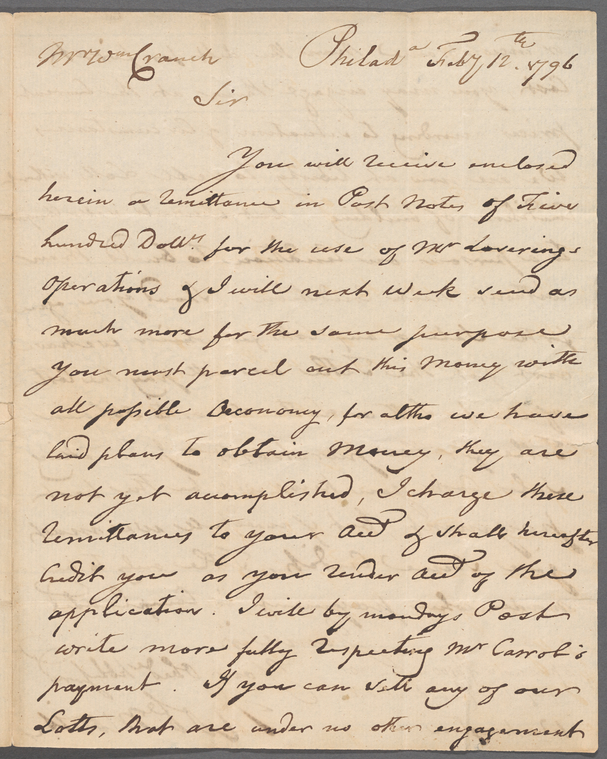 Mr Wm Cranch Philada Feby 12th. 1796
Sir
You will receive enclosed
herein a remittance in Post Notes of Five
hundred Dolls. for the use of Mr Loverings
operations & I will next Week send as
much more for the same purpose
You must parcel out this Money with
all possible Oeconomy, for altho we have
laid plans to obtain Money, they are
not yet accomplished, I charge these
remittances to your Acct & shall hereafter
Credit you as you render Acct of the
application. I will by mondays Post
write more fully respecting Mr Carrol's
payment. If you can sell any of our
Lotts, that are under no other engagement